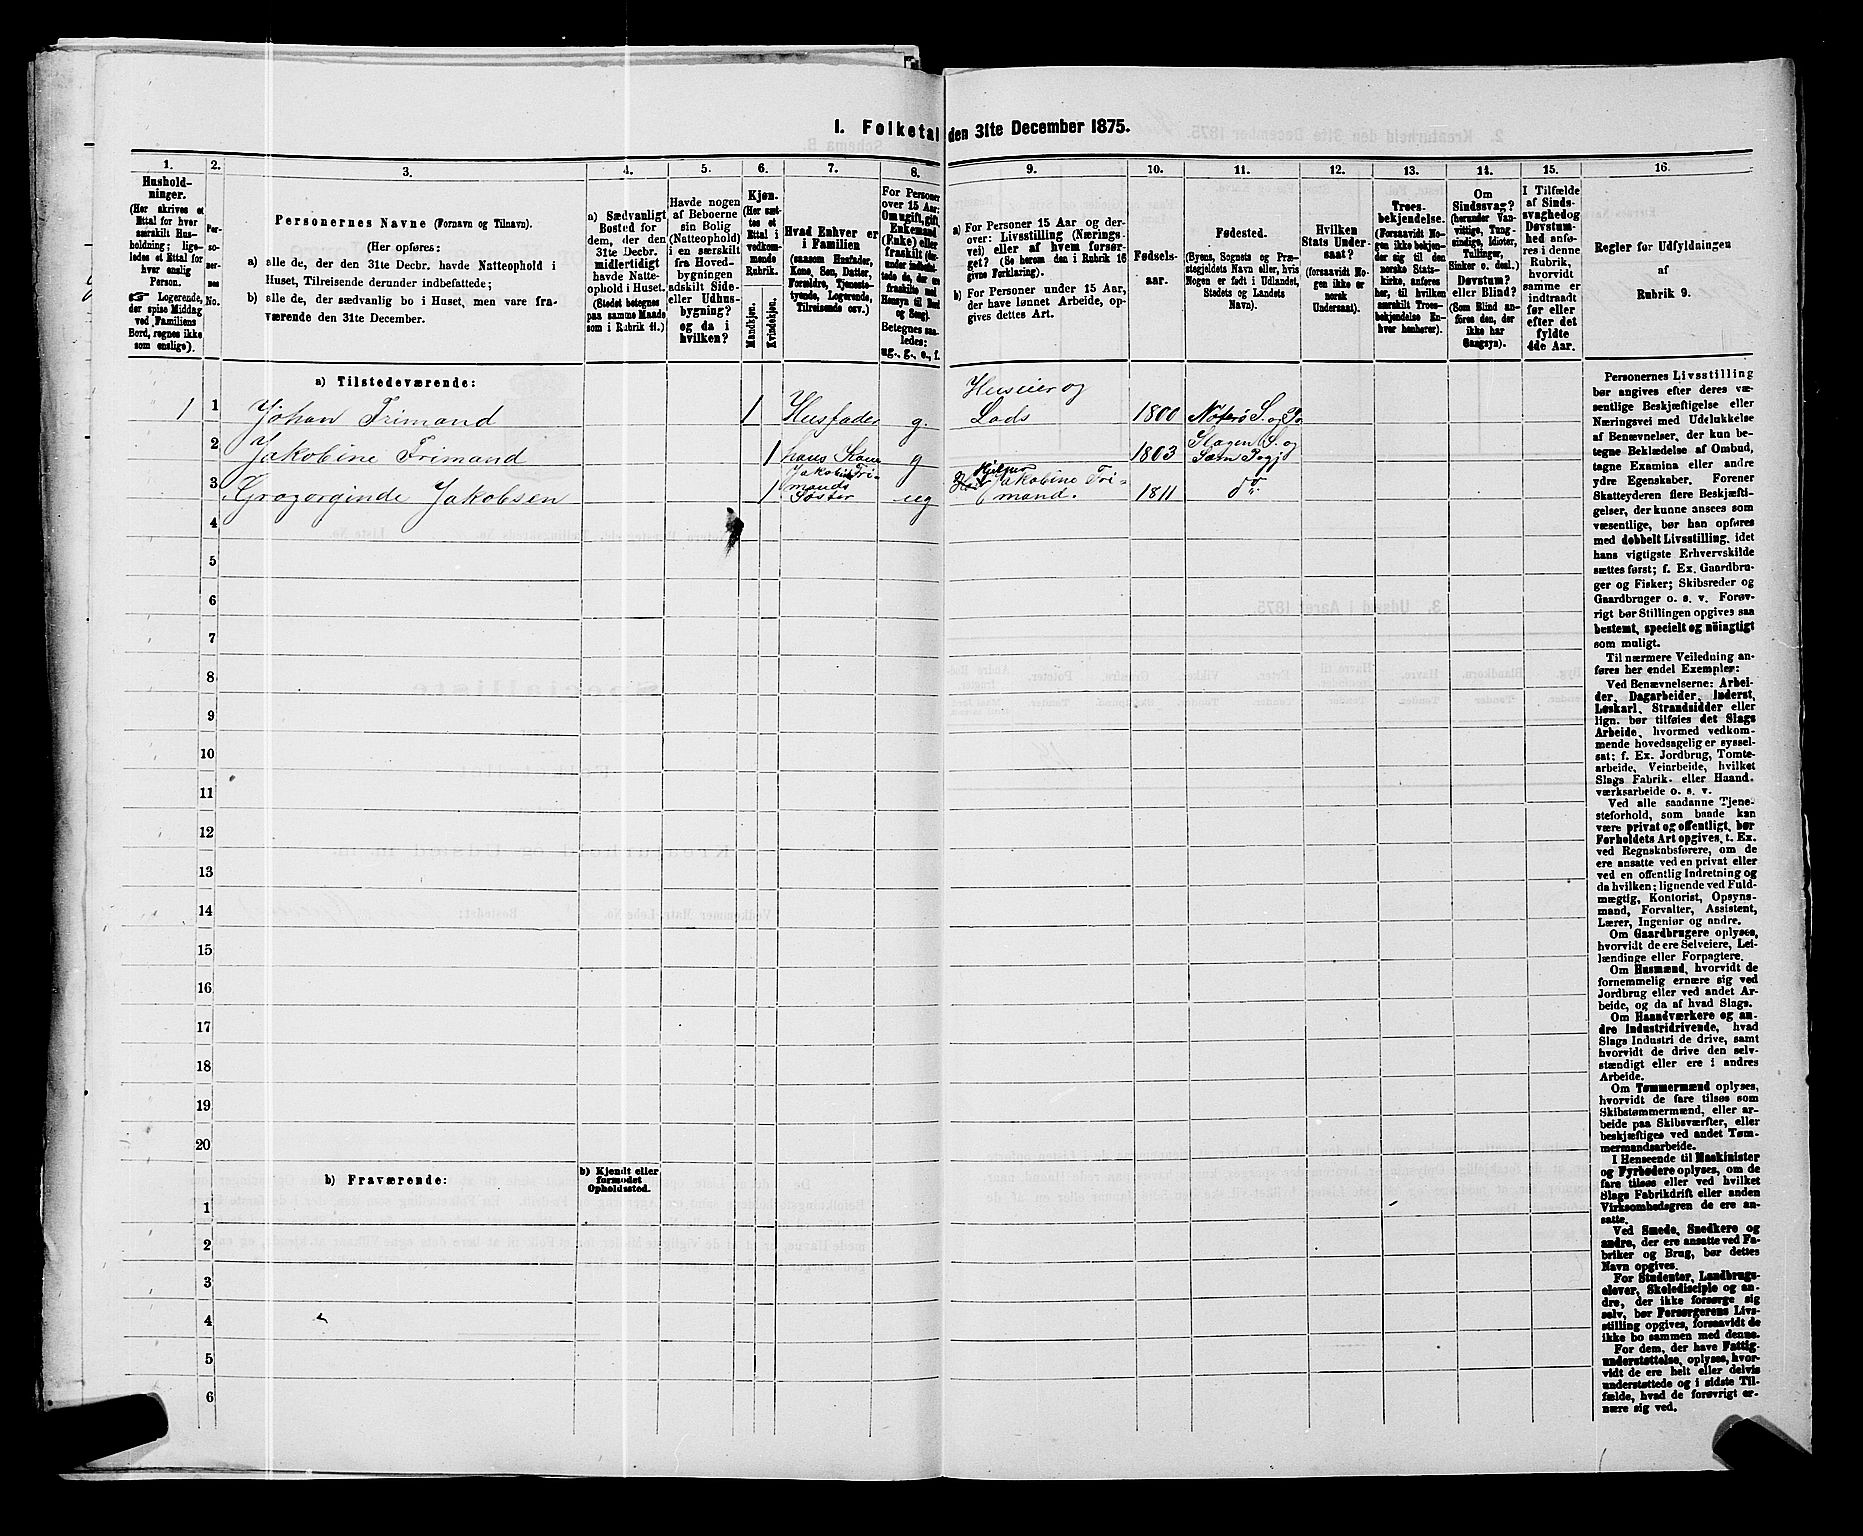 1. Folketal den 31te December 1875.
1. 2. 3. 4. 5. 6. 7. 8. 9. 10. 11. 12. 13. 14. 15. 16.
Hushold-
ninger.
(Her skrives et
Ettal for hver
særskilt Hus-
holdning; lige-
ledes et Ettal for
hver enslig
Person.
☞ Logerende,
der spise Middag
ved Familiens
Bord, regnes ikke
som enslige).
Per-
so-
ner-
nes
No.
Personernes Navne (Fornavn og Tilnavn).
(Her opføres:
a) alle de, der den 31te Decbr. havde Natteophold i
Huset, Tilreisende derunder indbefattede;
b) alle de, der sædvanlig bo i Huset, men vare fra-
værende den 31te December.
a) Sædvanligt
Bosted for
dem, der den
31te Decbr.
midlertidigt
havde Natte-
ophold i Huset.
(Stedet betegnes
paa samme Maade
som i Rubrik 11.)
Havde nogen
af Beboerne
sin Bolig
(Natteophold)
i en særskilt
fra Hoved-
bygningen
adskilt Side-
eller Udhus-
bygning?
og da i
hvilken?
Kjøn.
(Her sæt-
tes et
Ettal i
vedkom-
mende
Rubrik.
Mandkjøn.
Kvindekjøn.
Hvad Enhver er
i Familien
(saasom Husfader,
Kone, Søn, Datter,
Forældre, Tjeneste-
tyende, Logerende,
Tilreisende osv.)
For Personer
over 15 Aar:
Om ugift, gift,
Enkemand
(Enke) eller
fraskilt
Betegnes saa-
ledes:
ug., g., e., f.
a) For Personer 15 Aar og der-
over: Livsstilling (Nærings-
vei) eller af hvem forsør-
get? (Se herom den i Rubrik 16
givne Forklaring).
b) For Personer under 15 Aar,
der have lønnet Arbeide, op-
gives dettes Art.
Fødsels-
aar.
Fødested.
(Byens, Sognets og Præ-
stegjeldets Navn eller, hvis
Nogen er født i Udlandet,
Stedets og Landets
Navn).
Hvilken
Stats Under-
saat?
(forsaavidt No-
gen ikke er
norsk
Undersaat).
Troes-
bekjendelse.
(Forsaavidt No-
gen ikke bekjen-
der sig til den
norske Stats-
kirke, anføres
her, til hvilken
særskilt Troes-
bekjendelse En-
hver henhører).
Om
Sindssvag?
(herunder Van-
vittige, Tung-
sindige, Idioter,
Tullinger,
Sinker o. desl.)
Døvstum?
eller Blind?
(Som Blind an-
føres den, der
ikke har
Gangsyn).
I Tilfælde
af Sinds-
svaghed og
Døvstum-
hed anfø-
res i denne
Rubrik,
hvorvidt
samme er
indtraadt
før eller
efter det
fyldte
4de Aar.
Regler for Udfyldningen
af
Rubrik 9.
a) Tilstedeværende:
1 1 Johan Frimand 1 Husfader g. Huseier og
Lods 1800 Nøterø S. og P.
2 Jakobine Frimand 1 hans Kone g 1803 Slagen S. og
Sæm Pgj
3 Gregorginde Jakobsen 1 Jakobine Fri-
mands
Søster ug Hjelper Jakobine Fri-
mand. 1811 do
4
5
6
7
8
9
10
11
12
13
14
15
16
17
18
19
20
b) Fraværende:
b) Kjendt eller
formodet
Opholdssted.
1
2
3
4
5
6
Personernes Livsstilling
bør angives efter deres væ-
sentlige Beskjæftigelse eller
Næringsvei med Udelukkelse
af Benævnelser, der kun be-
tegne Beklædelse af Ombud,
tagne Examina eller andre
ydre Egenskaber. Forener
Skatteyderen flere Beskjæfti-
gelser, der kunne ansees som
væsentlige, bør han opføres
med dobbelt Livsstilling, idet
hans vigtigste Erhvervskilde
sættes først; f. Ex. Gaardbru-
ger og Fisker; Skibsreder og
Gaardbruger o. s. v. Forøv-
rigt bør Stillingen opgives saa
bestemt, specielt og nöiagtigt
som muligt.
Til nærmere Veiledning an-
føres her endel Exempler:
Ved Benævnelserne: Arbei-
der, Dagarbeider, Inderst,
Løskarl, Strandsidder eller
lign. bør tilføies det Slags
Arbeide, hvormed vedkom-
mende hovedsagelig er syssel-
sat; f. Ex. Jordbrug, Tomte-
arbeide, Veiarbeide, hvilket
Slags Fabrik- eller Haand-
værksarbeide o. s. v.
Ved alle saadanne Tjene-
steforhold, som baade kan
være privat og offentligt, bør
Forholdets Art opgives, t. Ex.
ved Regnskabsførere, om de
ere ansatte ved en privat eller
ved en offentlig Indretning og
da hvilken; lignende ved Fuld-
mægtig, Kontorist, Opsyns-
mand, Forvalter, Assistent,
Lærer, Ingeniør og andre.
Om Gaardbrugere oplyses,
hvorvidt de ere Selveiere, Lei-
lændinge eller Forpagtere.
Om Husmænd, hvorvidt de
fornemmelig ernære sig ved
Jordbrug eller ved andet Ar-
beide, og da af hvad Slags.
Om Haandværkere og an-
dre Industridrivende, hvad
Slags Industri de drive, samt
hvorvidt de drive den selv-
stændigt eller ere i andres
Arbeide.
Om Tømmermænd oplyses,
hvorvidt de fare tilsøs som
Skibstømmermænd, eller ar-
beide paa Skibsværfter, eller
beskjæftiges ved andet Tøm-
mermandsarbeide.
I Henseende til Maskinister
og Fyrbødere oplyses, om de
fare tilsøs eller ved hvilket
Slags Fabrikdrift eller anden
Virksomhedsgren de ere an-
satte.
Ved Smede, Snedkere og
andre, der ere ansatte ved Fa-
briker og Brug, bør dettes
Navn opgives.
For Studenter, Landbrugs-
elever, Skoledisciple og an-
dre, der ikke forsørge sig
selv, bør Forsørgerens Livs-
stilling opgives, forsaavidt de
ikke bo sammen med denne.
For dem, der have Fattig-
understøttelse, oplyses, hvor-
vidt de ere helt eller delvis
understøttede og i sidste Til-
fælde, hvad de forøvrigt er-
nære sig ved.